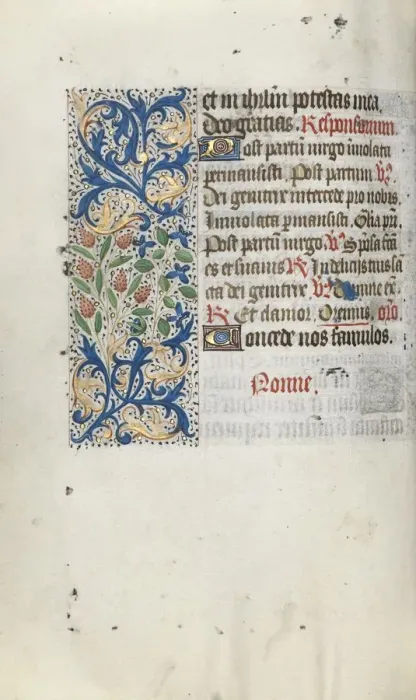 et in ihrlm potestas mea.
deo gratias. Responsorium.
Post partũ virgo inviolata
permansisti. Post partum. V̷.
Dei genitrix intercede pro nobis.
Inviolata pmansisti. Gl̃ia pr̃i.
Post partũ virgo. V̷. Speciosa f̃ca
es et suavis. R̷. In deliciis tuis sã
cta dei genitrix. V̷. Domine ex̃.
R̷. Et clamor. Oremus. orõ
Concede nos famulos.
Nonne.